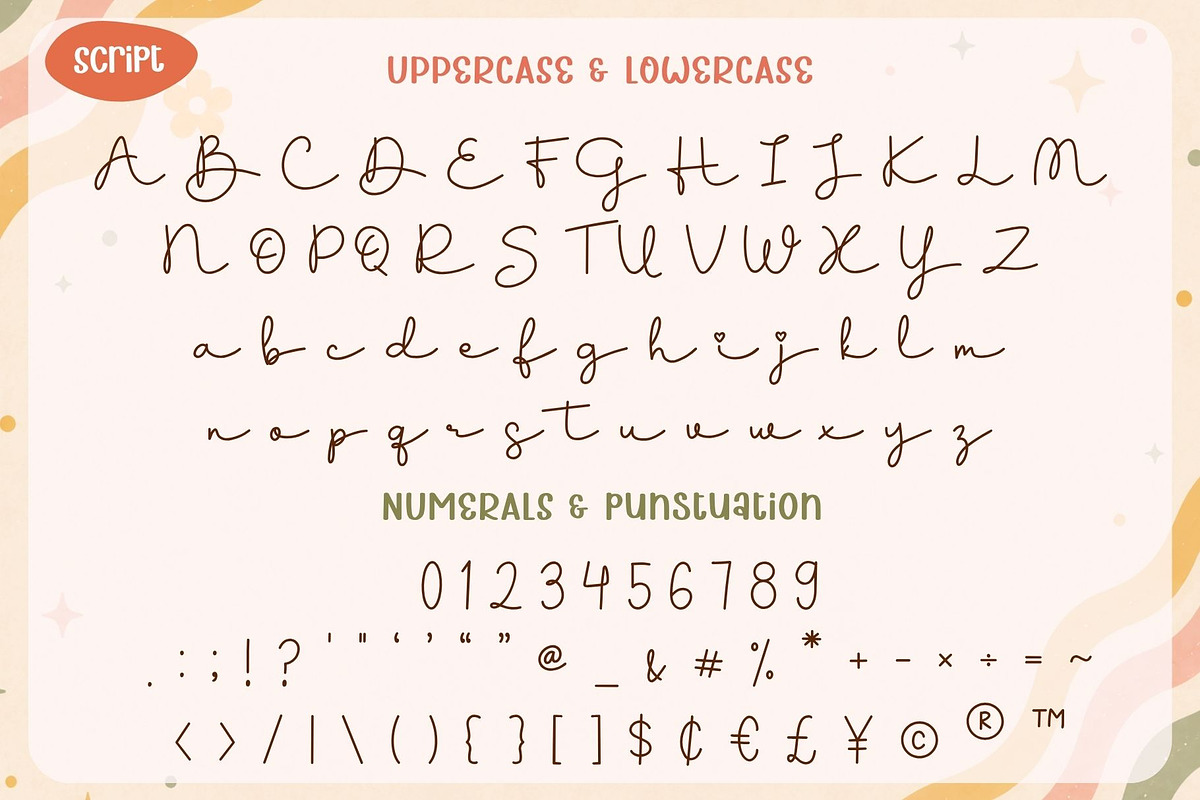 script
UPPERCASE & LOWERCASE
A B C D E F G H I J K L M
N O P Q R S T U V W X Y Z
a b c d e f g h i j k l m
n o p q r s t u v w x y z
NUMERALS & Punstuation
0 1 2 3 4 5 6 7 8 9
. : ; ! ? ' " ‘ ’ “ ” @ _ & # % * + - × ÷ = ~
< > / | \ ( ) { } [ ] $ ₵ € £ ¥ © ® ™